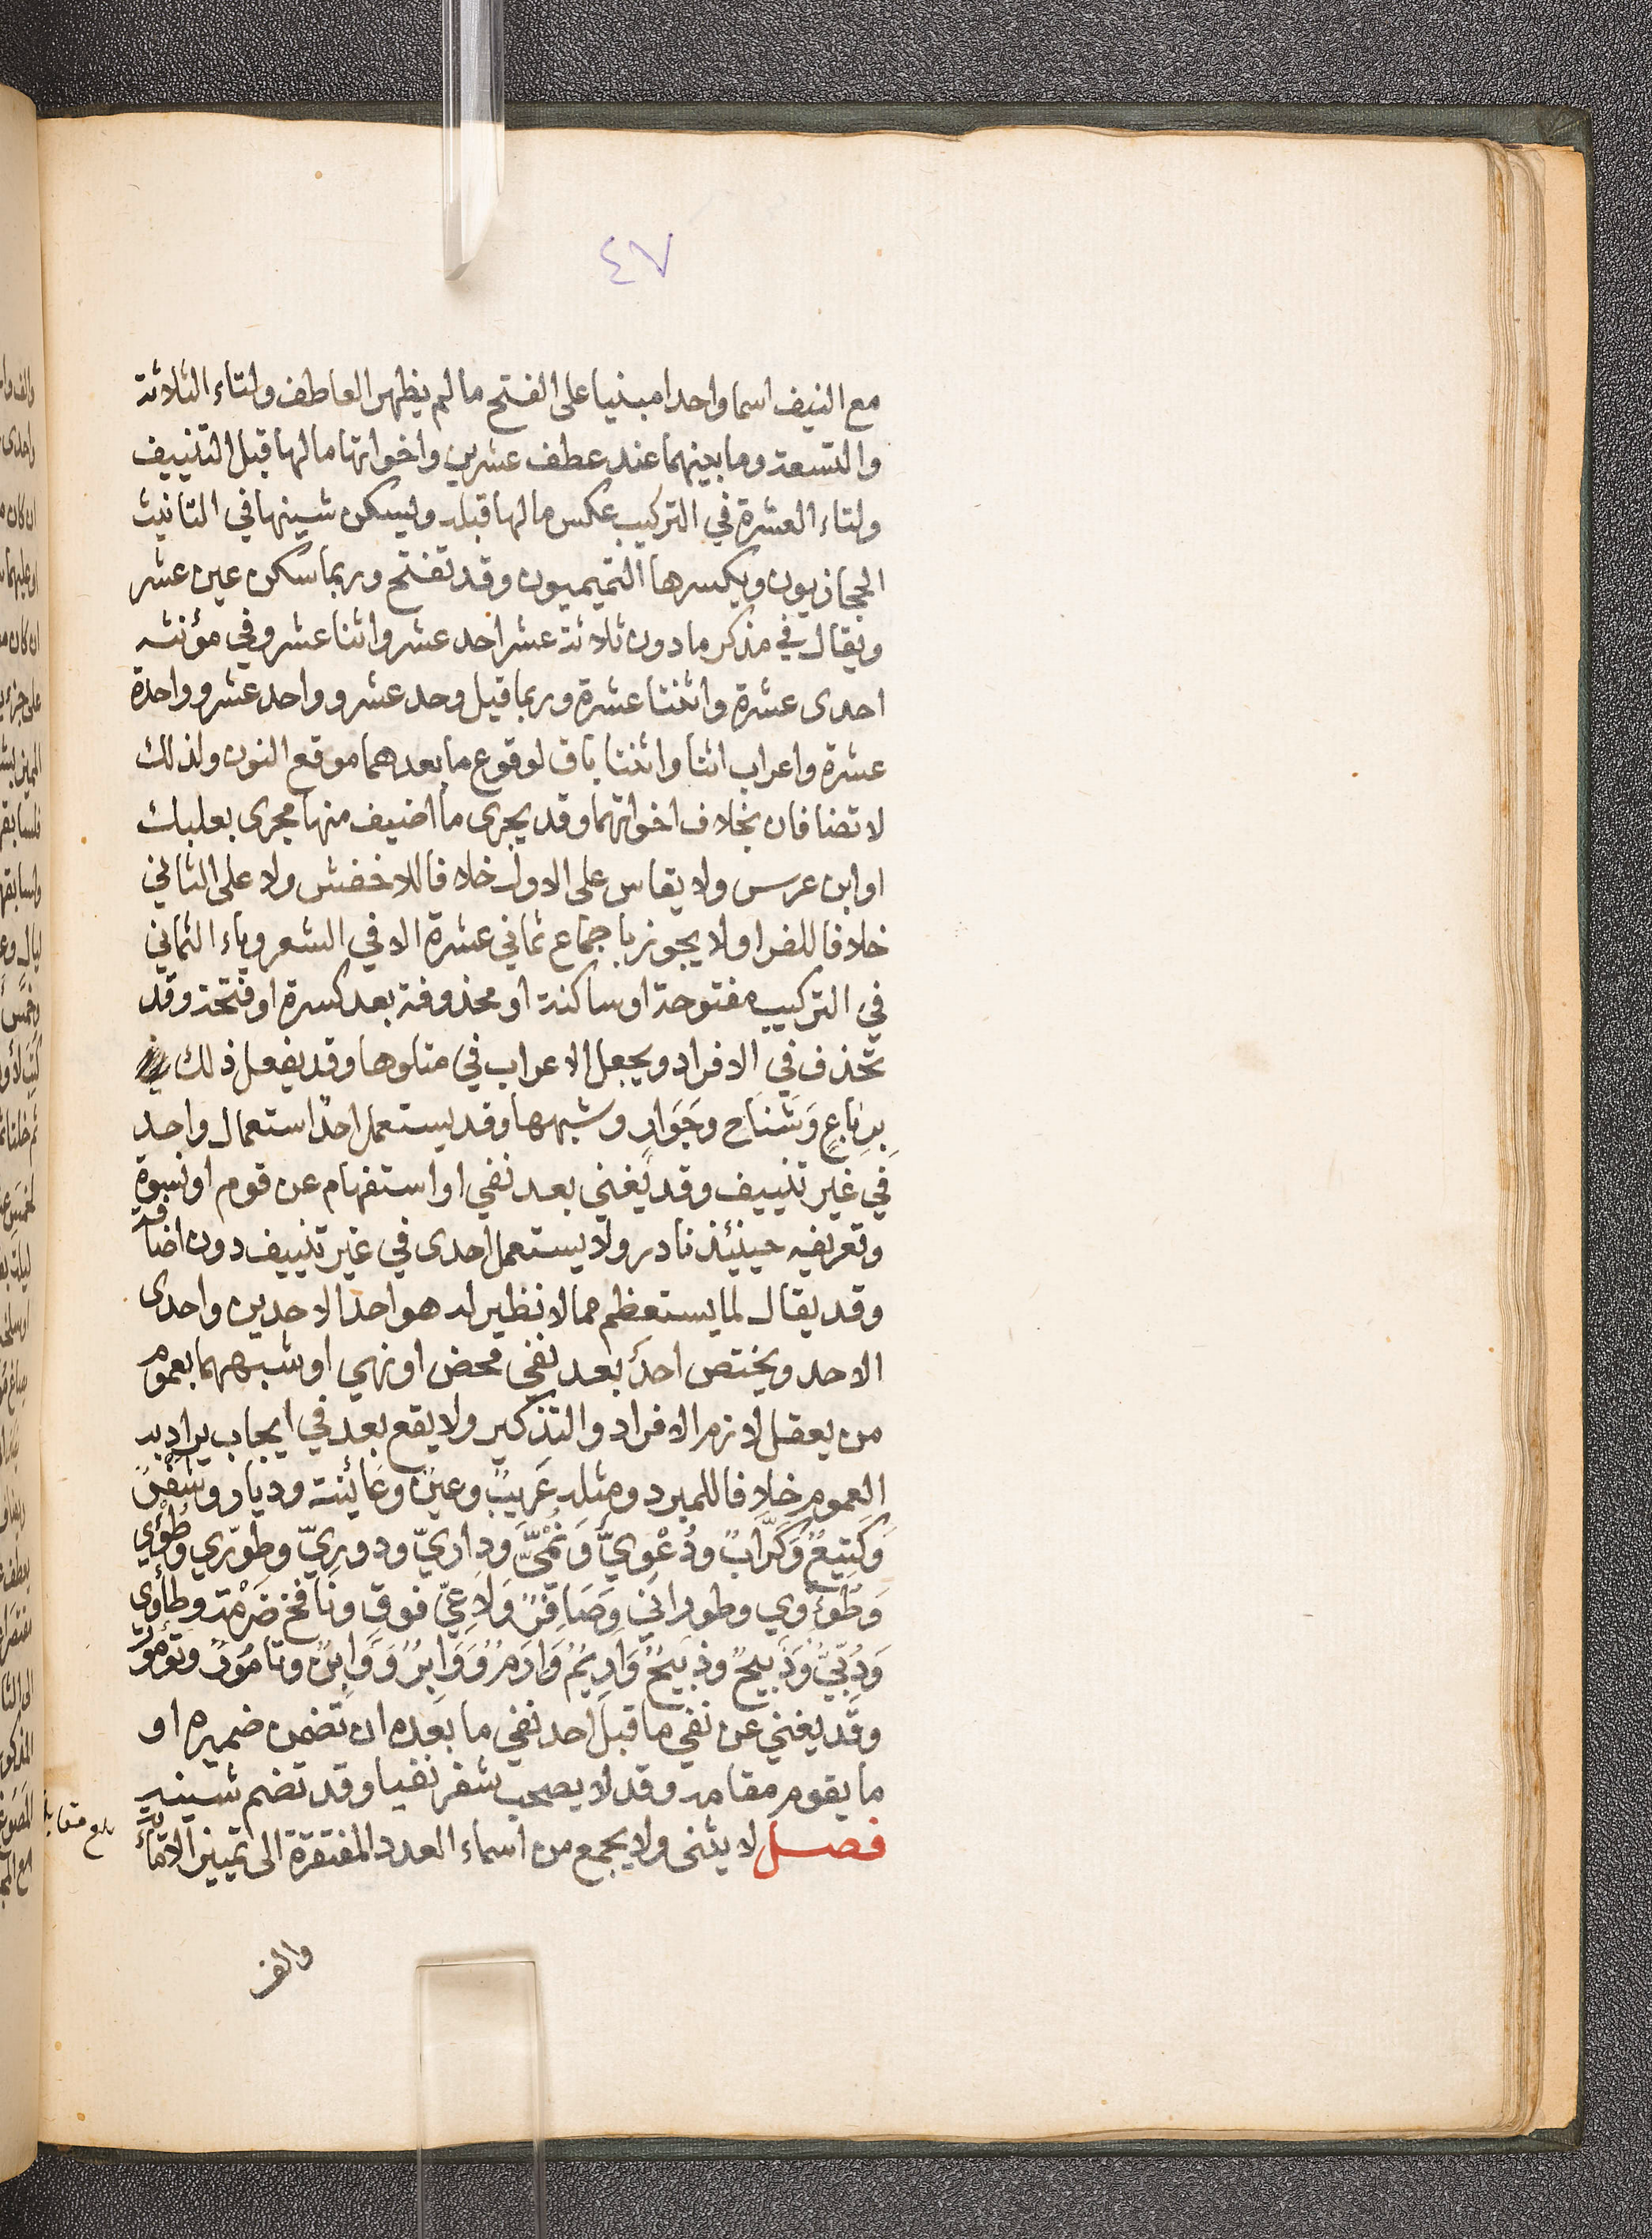 ٤٧
مع النيف اسما واحدا مبنيا على الفتح ما لم يظهر العاطف ولتاء الثلاثة
والتسعة وما بينهما عند عطف عشرين واخواتها ما لها قبل التنييف
ولتاء العشرة في التركيب عكس ما لها قبله ويسكن شينها في التانيث
الحجازيون ويكسرها التميميون وقد تفتح وربما سكن عين عشر
ويقال في مذكر ما دون ثلاثة عشر احد عشر واثنا عشر وفي مؤنثه
احدى عشرة واثنتا عشرة وربما قيل وحد عشر وواحد عشر وواحدة
عشرة واعراب اثنا واثنتا باق لوقوع ما بعدهما موقع النون ولذلك
لا تضافان بخلاف اخواتهما وقد يجرى ما اضيف منها مجرى بعلبك
او ابن عرس ولا يقاس على الاول خلافا للاخفش ولا على الثاني
خلافا للفرا ولا يجوز باجماع ثماني عشرة الا في الشعر وياء الثماني
في التركيب مفتوحة او ساكنة او محذوفة بعد كسرة او فتحة وقد
تحذف في الافراد ويجعل الاعراب في متلوها وقد يفعل ذلك
بِرباعٍ وَشَنَاح وجَوَارٍ وشبهها وقد يستعمل احدٌ استعمال واحد
في غير تنييف وقد يغني بعد نفي او استفهام عن قوم او نسوة
وتعريفه حينئذ نادر ولا يستعمل احدى في غير تنييف دون اضافة
وقد يقال لما يستعظم مما لا نظير له هو احد الاحدين واحدى
الاحد ويختص احدٌ بعد نفي محض او نهي او شبههما بعموم
من يعقل لازم الافراد والتذكير ولا يقع بعد في ايجاب يراد به
العموم خلافا للمبرد ومثله عَريبٌ وعينٌ وعَائِنة وديار وشَفْرٌ
وَكَتِيعٌ وَكَرَّابٌ ودُعْوِيٌّ وَنُمِّيٌّ وداريّ ودوريّ وطوري وطُوئِي
وَطُوءَوي وطوراني وَصَافِرٌ وَلَاعِيّ قَروٍ ونافخ ضَرْمَة وطأوي
وَدُبِّيٌّ وَدَبِيحٌ وذبيحٌ وَارِيمٌ وَارَمٌ وَوَابِرٌ وَوَابِنٌ وتامُورٌ وتؤمُورٌ
وقد يغني عن نفي ما قبل احد نفي ما بعده ان تضمن ضميره او
ما يقوم مقامه وقد لا يصحب شفر نفيا وقد تضم شينه
فصل لا يثنى ولا يجمع من اسماء العدد المفتقرة الى تمييز الا مائة
بلغ مقابلة
والف